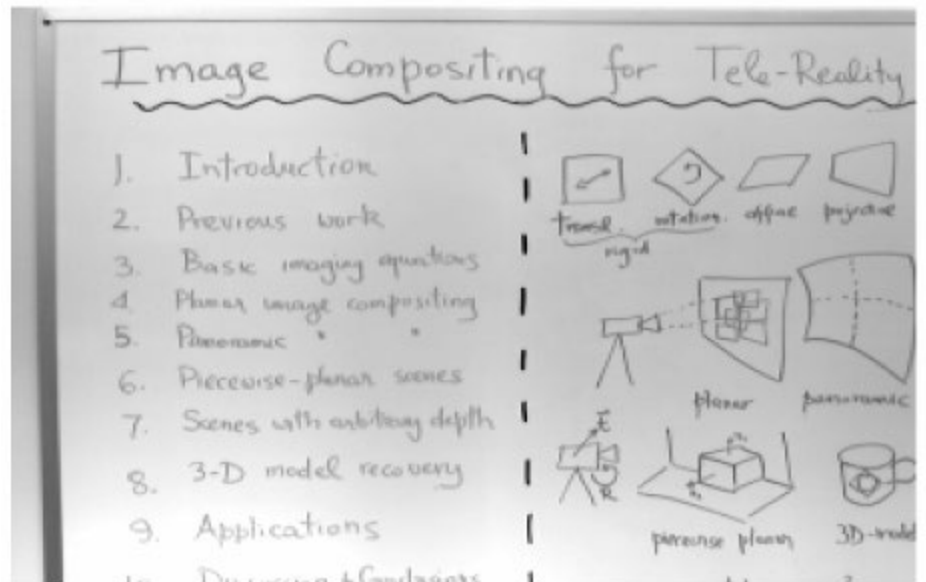 Image Compositing for Tele-Reality
1. Introduction
2. Previous work
3. Basic imaging equations
4 Planar image compositing
5. Panoramic " "
6. Piecewise-planar scenes
7. Scenes with arbitrary depth
8. 3-D model recovery
9. Applications
Discussion + Conclusions
transl. rotation. affine projective
rigid
planar panoramic
t
R
piecewise planar 3D-model